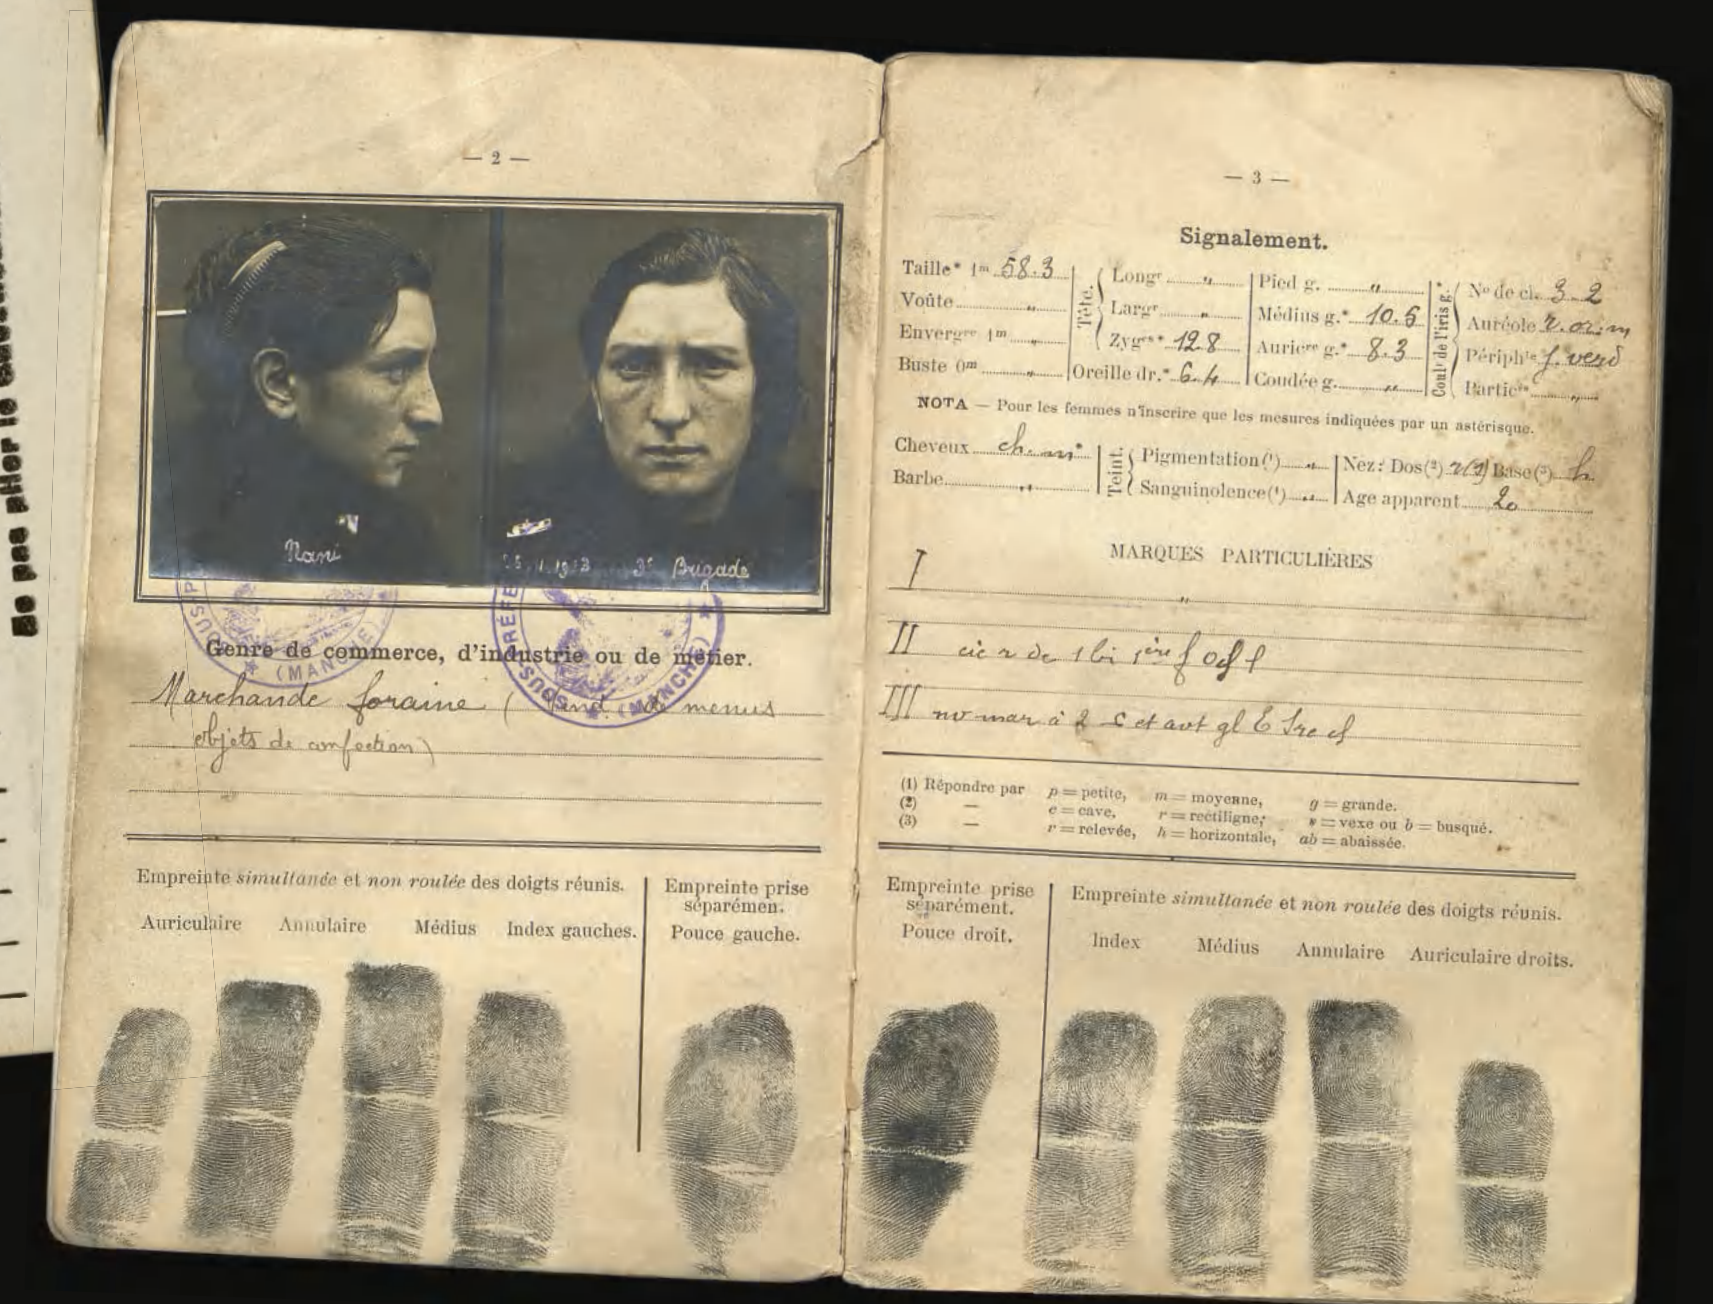 — 2 —
Nani
1913 3e Brigade
SOUS-PRÉFE
(MANCHE)
SOUS-PRÉFE
(MANCHE)
Genre de commerce, d'industrie ou de métier.
Marchande foraine ( Vend de menus
objets de confection)
Empreinte simultanée et non roulée des doigts réunis.
Auriculaire Annulaire Médius Index gauches.
Empreinte prise
séparémen.
Pouce gauche.
— 3 —
Signalement.
Taille* 1m 58.3
Voûte „
Envergre 1m „
Buste 0m „
Tête.
Longr „
Largr „
Zyges* 12.8
Oreille dr.* 6.4
Pied g. „
Médius g.* 10.5
Auricre g.* 8.3
Coudée g. „
Coulr de l'iris g.*
No de cl. 3-2
Auréole r. or. m
Périphie j. verd
Particés „
NOTA — Pour les femmes n'inscrire que les mesures indiquées par un astérisque.
Cheveux ch. m*
Barbe „
Teint.
Pigmentation(1) „
Sanguinolence(1) „
Nez: Dos(2) Base(3) h
Age apparent 20
MARQUES PARTICULIÈRES
I „
II cic r de 1 bi 1ère f
III nv mar à 2 c et avt gl
(1) Répondre par p = petite, m = moyenne, g = grande.
(2) — c = cave, r = rectiligne; v = vexe ou b = busqué.
(3) — r = relevée, h = horizontale, ab = abaissée.
Empreinte prise
séparément.
Pouce droit.
Empreinte simultanée et non roulée des doigts réunis.
Index Médius Annulaire Auriculaire droits.
Ne pas plier le